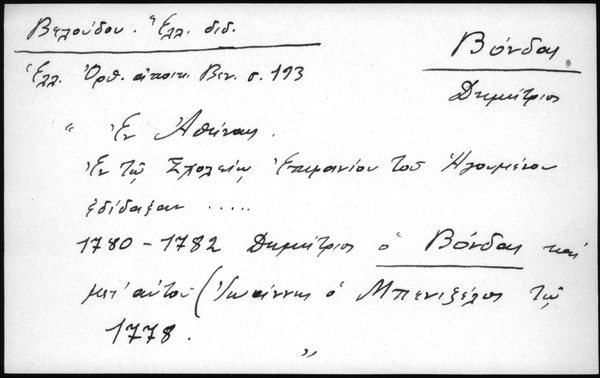 Βελούδου. Ἑλλ. διδ.
Βόνδας
Ἑλλ. Ὀρθ. ἀποικ. Βεν. σ. 193
Δημήτριος
" Ἐν Ἀθήναις.
Ἐν τῷ Σχολείῳ Ἐπιφανίου τοῦ Ἡγουμένου
ἐδίδαξαν .....
1780 - 1782 Δημήτριος ὁ Βόνδας καὶ
μετ' αὐτοῦ (Ἰωάννης ὁ Μπενιζέλος τῷ
1778. "